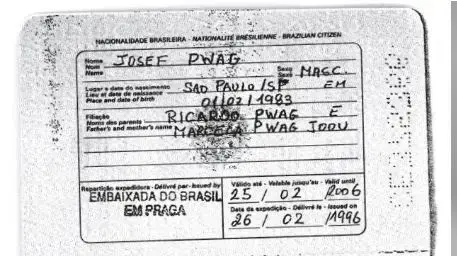 NACIONALIDADE BRASILEIRA - NATIONALITÉ BRÉSILIENNE - BRAZILIAN CITIZEN
Nome
Nom
Name
JOSEF PWAG
Sexo
Sexe
Sex
MASC.
Lugar e data do nascimento
Lieu et date de naissance
Place and date of birth
SAO PAULO/SP EM
01/02/1983
Filiação
Noms des parents
Father's and mother's name
RICARDO PWAG E
MARCELA PWAG
Repartição expedidora - Délivré par - Issued by
EMBAIXADA DO BRASIL
EM PRAGA
Válido até - Valable jusqu'au - Valid until
25 / 02 /2006
Data da expedição - Délivré le - Issued on
26 / 02 /1996